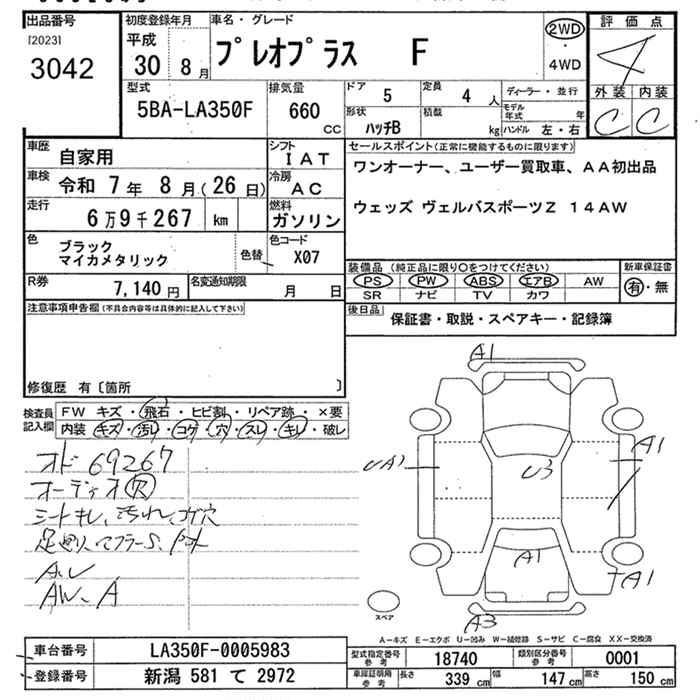 出品番号
[2023]
3042
初度登録年月
平成
30年 8月
車名・グレード
プレオプラス F
2WD
・
4WD
評価点
4
外装 内装
C C
型式
5BA-LA350F
排気量
660
CC
ドア
5
定員
4人
形状
ハッチB
積載
kg
ディーラー・並行
モデル年式 年
ハンドル 左・右
車歴
自家用
シフト
IAT
車検
令和 7年 8月(26日)
冷房
AC
走行
6万9千267 km
燃料
ガソリン
色
ブラック
マイカメタリック
色替
色コード
X07
R券
7,140円
名変通知期限
月 日
セールスポイント(正常に機能するものに限ります)
ワンオーナー、ユーザー買取車、AA初出品
ウェッズ ヴェルバスポーツZ 14AW
装備品(純正品に限り○をつけてください)
PS PW ABS エアB AW
SR ナビ TV カワ
新車保証書
有・無
後日品
保証書・取説・スペアキー・記録簿
注意事項申告欄(不具合内容等は具体的に記入して下さい)
修復歴 有〔箇所 〕
検査員
記入欄
FW キズ・飛石・ヒビ割・リペア跡・×要
内装 キズ・汚れ・コゲ・穴・スレ・キレ・破レ
オド 69267
オーディオ穴
シートキレ、汚れ、コゲ穴
足廻り、マフラーS、
AW、A
A1
UA1
U3
A1
A1
A1
A3
スペア
A-キズ E-エクボ U-凹み W-補修跡 S-サビ C-腐食 XX-交換済
車台番号
LA350F-0005983
登録番号
新潟 581 て 2972
型式指定番号
参考
18740
類別区分番号
参考
0001
車庫証明用
参考
長さ
339 cm
幅
147 cm
高さ
150 cm